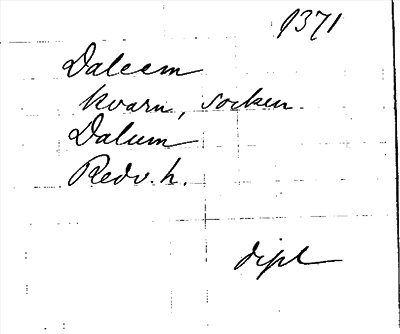 1371
Daleem
kvarn, socken.
Dalum
Redv. h.
dipl